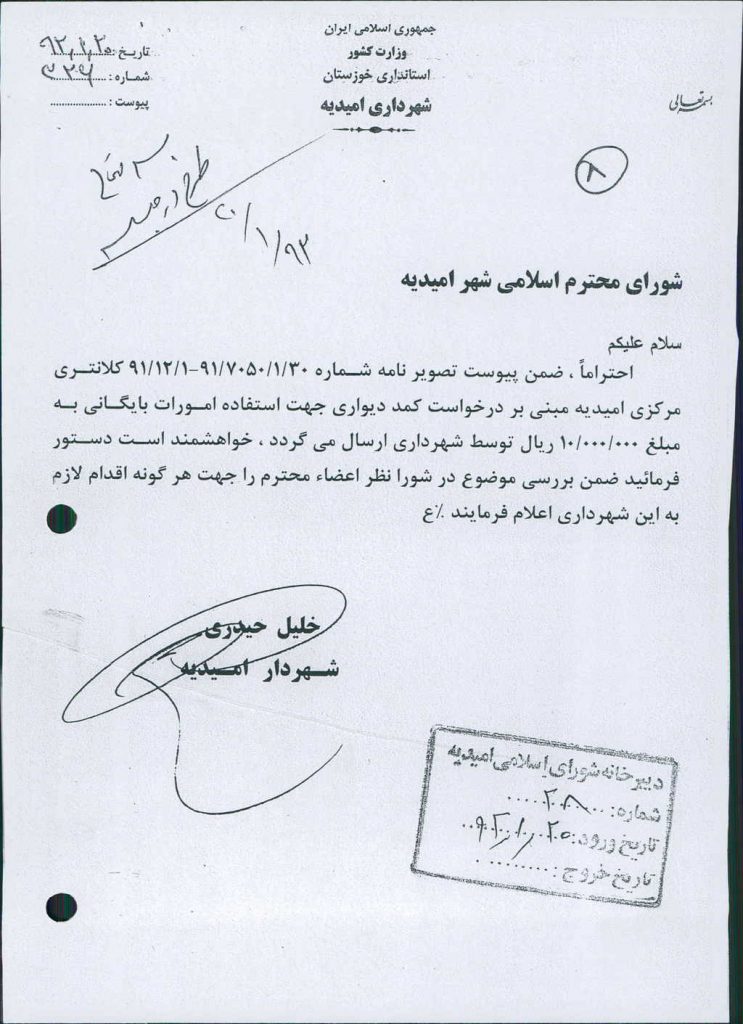 جمهوری اسلامی ایران
وزارت کشور
استانداری خوزستان
شهرداری امیدیه
بسمه تعالی
تاریخ :
شماره : ۳۳۶
پیوست :
۸
طرح در جلسه
۲۰/۱/۹۳
شورای محترم اسلامی شهر امیدیه
سلام علیکم
احتراماً ، ضمن پیوست تصویر نامه شماره ۹۱/۷۰۵۰/۱/۳۰-۹۱/۱۲/۱ کلانتری
مرکزی امیدیه مبنی بر درخواست کمد دیواری جهت استفاده امورات بایگانی به
مبلغ ۱۰/۰۰۰/۰۰۰ ریال توسط شهرداری ارسال می گردد ، خواهشمند است دستور
فرمائید ضمن بررسی موضوع در شورا نظر اعضاء محترم را جهت هر گونه اقدام لازم
به این شهرداری اعلام فرمایند ٪ع
خلیل حیدری
شهردار امیدیه
دبیرخانه شورای اسلامی امیدیه
شماره: ۲۰۸
تاریخ ورود:
تاریخ خروج :